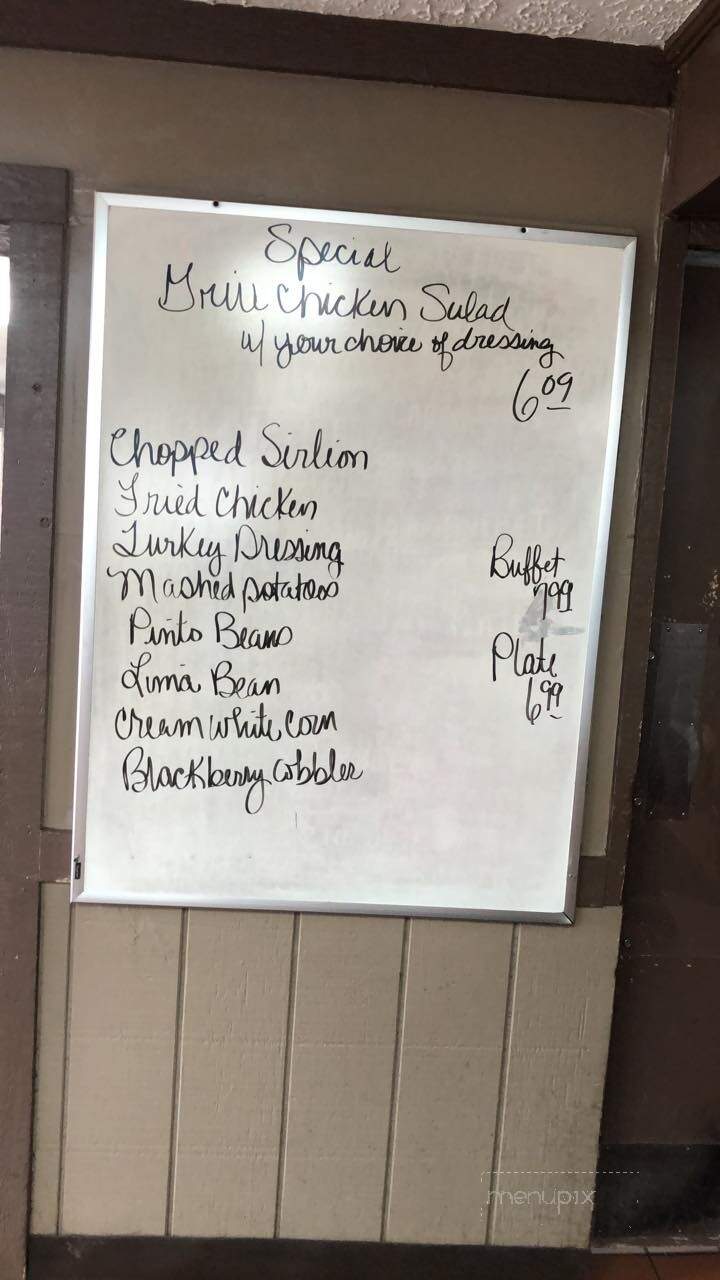 Special
Grill Chicken Salad
w/ your choice of dressing
6 09
Chopped Sirlion
Fried Chicken
Turkey Dressing
Mashed potatoes
Pinto Beans
Lima Bean
Cream white Corn
Blackberry Cobbler
Buffet
7 99
Plate
6 99
menupix